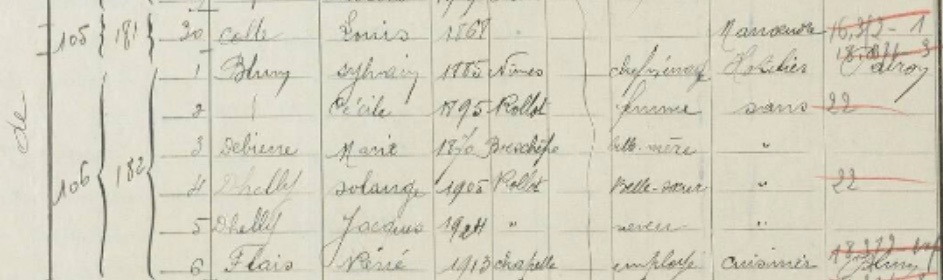 de
105 181 30 Calle Louis 1868 Manoeuvre
106 182 1 Blum Sylvain 1885 Nimes chef ménage Hotelier Patron
2 " Cécile 1895 Rollot femme sans 22
3 Debierre Marie 1870 belle-mère "
4 Dhelly Solange 1905 Rollot Belle-soeur " 22
5 Dhelly Jacques 1924 " neveu "
6 Flais Réné 1913 chapelle employé cuisinier Blum